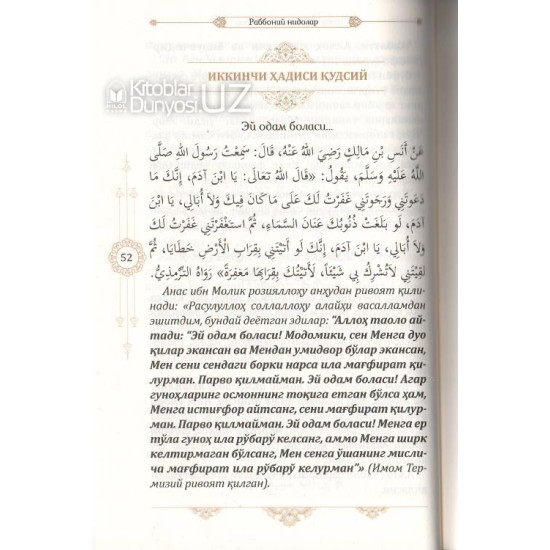 Раббоний нидолар
ИККИНЧИ ҲАДИСИ ҚУДСИЙ
Kitoblar
Dunyosi.UZ
Эй одам боласи...
عَنْ أَنَسِ بْنِ مَالِكٍ رَضِيَ اللهُ عَنْهُ، قَالَ: سَمِعْتُ رَسُولَ اللهِ صَلَّى
اللهُ عَلَيْهِ وَسَلَّمَ، يَقُولُ: «قَالَ اللهُ تَعَالَى: يَا ابْنَ آدَمَ، إِنَّكَ مَا
دَعَوْتَنِي وَرَجَوْتَنِي غَفَرْتُ لَكَ عَلَى مَا كَانَ فِيكَ وَلَا أُبَالِي، يَا ابْنَ
آدَمَ، لَوْ بَلَغَتْ ذُنُوبُكَ عَنَانَ السَّمَاءِ، ثُمَّ اسْتَغْفَرْتَنِي غَفَرْتُ لَكَ
وَلَا أُبَالِي، يَا ابْنَ آدَمَ، إِنَّكَ لَوْ أَتَيْتَنِي بِقِرَابِ الْأَرْضِ خَطَايَا، ثُمَّ
لَقِيتَنِي لَاتُشْرِكُ بِي شَيْئًا، لَأَتَيْتُكَ بِقِرَابِهَا مَغْفِرَةً» رَوَاهُ التِّرْمِذِيُّ.
52
Анас ибн Молик розияллоҳу анҳудан ривоят қили-
нади: «Расулуллоҳ соллаллоҳу алайҳи васалламдан
эшитдим, бундай деётган эдилар: "Аллоҳ таоло ай-
тади: "Эй одам боласи! Модомики, сен Менга дуо
қилар экансан ва Мендан умидвор бўлар экансан,
Мен сени сендаги борки нарса ила мағфират қи-
лурман. Парво қилмайман. Эй одам боласи! Агар
гуноҳларинг осмоннинг тоқига етган бўлса ҳам,
Менга истиғфор айтсанг, сени мағфират қилур-
ман. Парво қилмайман. Эй одам боласи! Менга ер
тўла гуноҳ ила рўбарў келсанг, аммо Менга ширк
келтирмаган бўлсанг, Мен сенга ўшанинг мисли-
ча мағфират ила рўбарў келурман"» (Имом Тер-
мизий ривоят қилган).